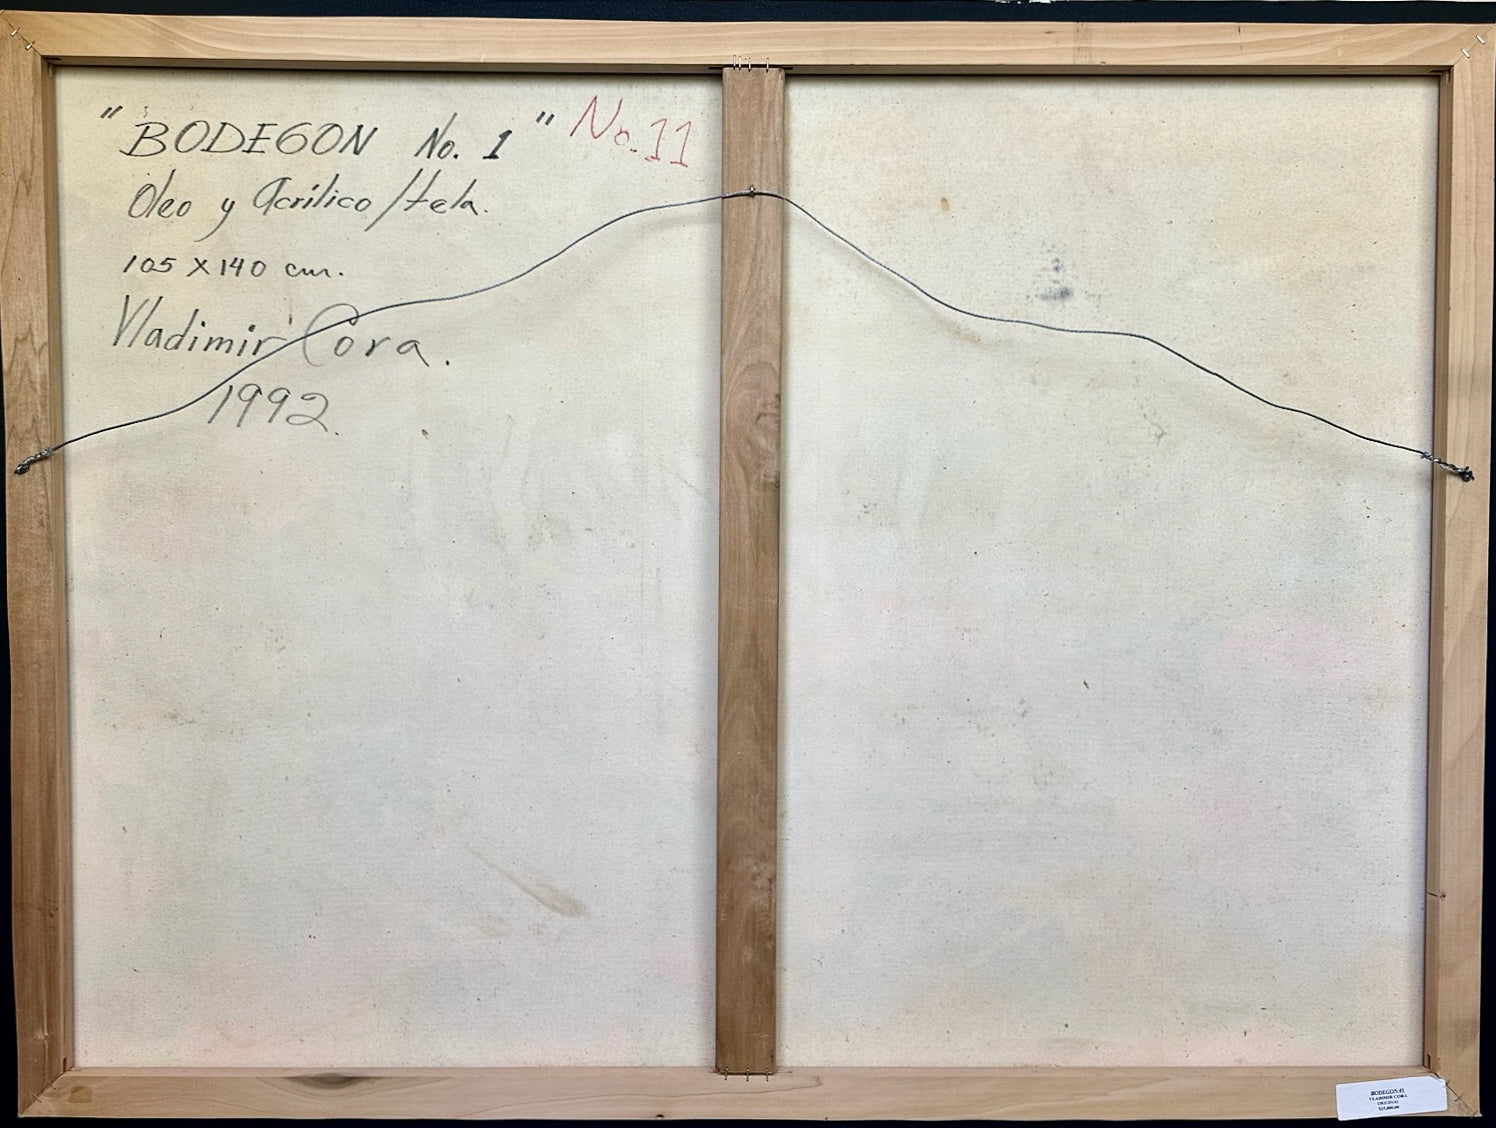 "BODEGON No. 1" No. 11
Oleo y Acrílico/tela.
105 X 140 cm.
Vladimir Cora.
1992.
BODEGON #1
VLADIMIR CORA
ORIGINAL